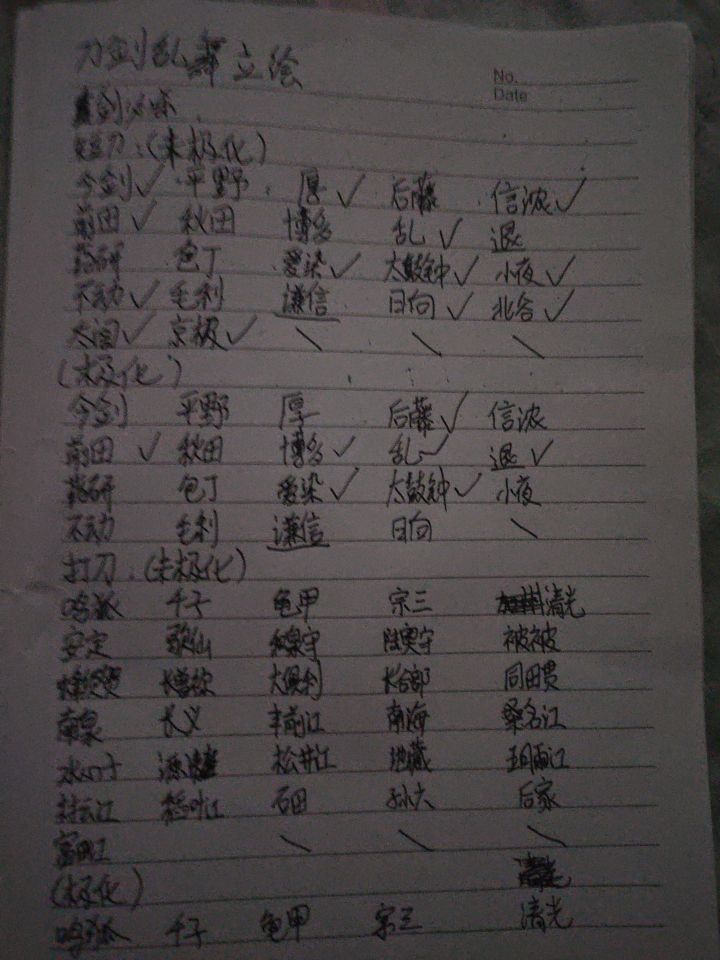 刀剑乱舞立绘
No.
Date
短刀:(未极化)
今剑✓ 平野 厚✓ 后藤 信浓✓
前田✓ 秋田 博多 乱✓ 退
药研 包丁 爱染✓ 太鼓钟✓ 小夜✓
不动✓ 毛利 谦信 日向✓ 北谷✓
太阁✓ 京极✓ \ \ \
(极化)
今剑 平野 厚 后藤✓ 信浓
前田✓ 秋田 博多✓ 乱✓ 退✓
药研 包丁 爱染✓ 太鼓钟✓ 小夜
不动 毛利 谦信 日向 \
打刀:(未极化)
鸣狐 千子 龟甲 宗三 清光
安定 歌仙 和泉守 陆奥守 被被
蜂须贺 长曾祢 大俱利 长谷部 同田贯
南泉 长义 丰前江 南海 桑名江
水心子 源清麿 松井江 地藏 五月雨江
村云江 稻叶江 石田 孙六 后家
富田江 \ \ \
(极化)
鸣狐 千子 龟甲 宗三 清光